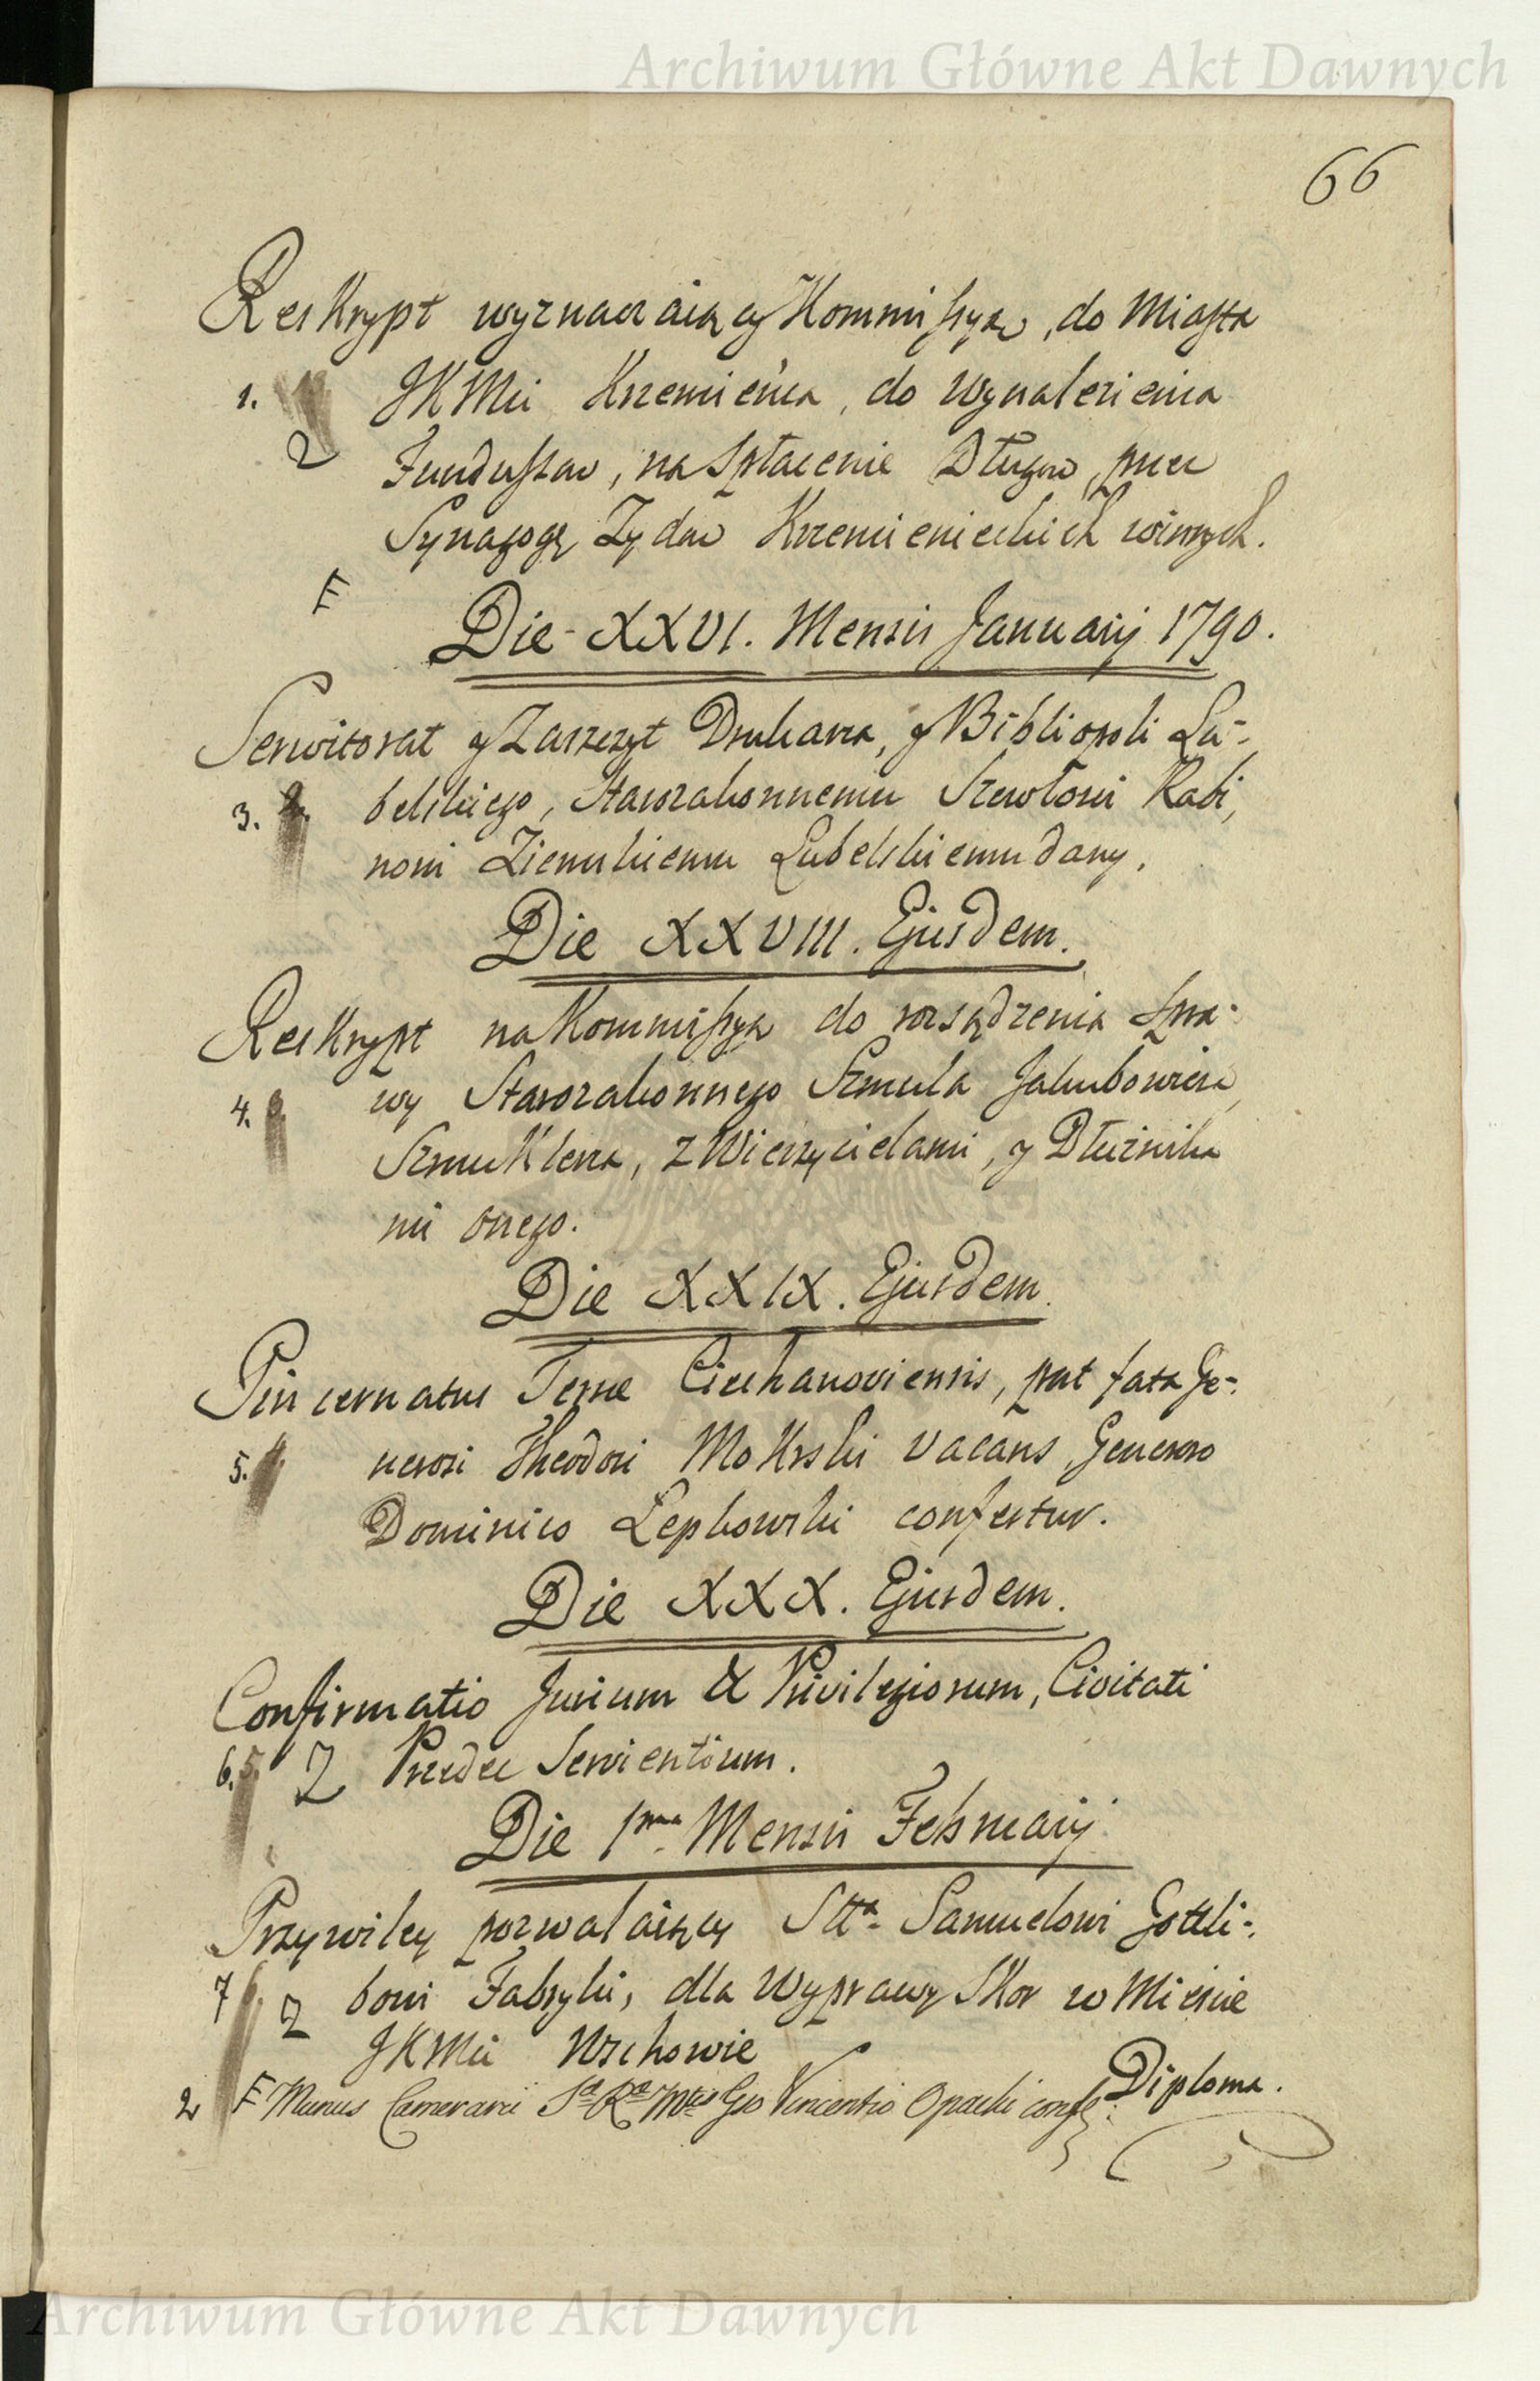 Archiwum Główne Akt Dawnych
66
Reskrypt wyznaczaiący Kommissyą, do Miasta
1. JKMci Krzemieńca, do wynalezienia
2 Funduszow, na spłacenie Długow, przez
Synagogę Zydow Krzemienieckich winnych.
F
Die XXVI. Mensis Januarij 1790.
Serwitorat y Zaszczyt Drukarza, y Bibliopoli Lu-
3. belskiego, Starozakonnemu Szewłowi Rabi,
nowi Ziemskiemu Lubelskiemu dany.
Die XXVIII. Ejusdem.
Reskrypt na Kommissyą do rozsądzenia Spra-
4. wy Starozakonnego Szmula Jakubowicza
Szmuklerza, z Wierzycielami, y Dłużnika
mi onego.
Die XXIX. Ejusdem.
Pincernatus Terrae Ciechanoviensis, post fata Ge-
5. nerosi Theodori Mokrski vacans, Generoso
Dominico Lepkowski confertur.
Die XXX. Ejusdem.
Confirmatio Jurium & Privilegiorum, Civitati
6. 5. 2 Przedec Servientium.
Die 1ma Mensis Februarij
Przywiley pozwalaiący Stta Samuelowi Gottli-
7 2 bowi Fabryki, dla Wyprawy Skor w Mieście
JKMci Wschowie
Diploma.
2 F Munus Camerarii Sa Ra Mtis Gso Vincentio Opacki conf:
Archiwum Główne Akt Dawnych